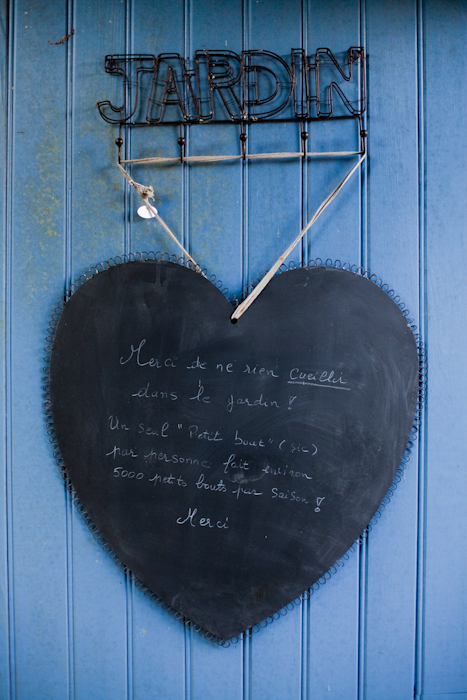 JARDIN
Merci de ne rien cueillir
dans le jardin !
Un seul "Petit bout" (sic)
par personne fait environ
5000 petits bouts par saison !
Merci